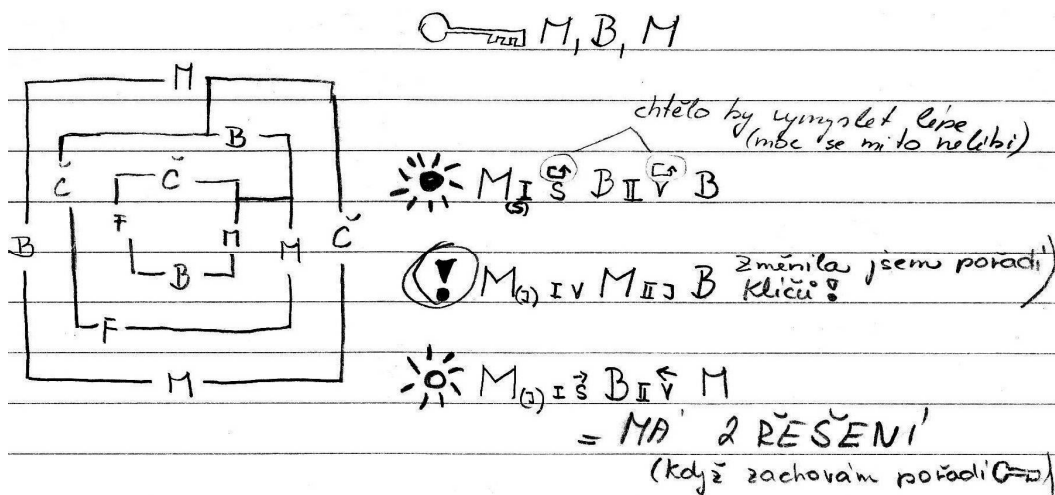 M, B, M
M
B
Č
Č
F
M
B
M
B
Č
F
M
chtělo by vymyslet lépe
(moc se mi to nelíbí)
M I (S) S B II V B
M (J) I V M II J B změnila jsem pořadí
klíčů!
M (J) I S B II V M
= MÁ 2 ŘEŠENÍ
(když zachovám pořadí